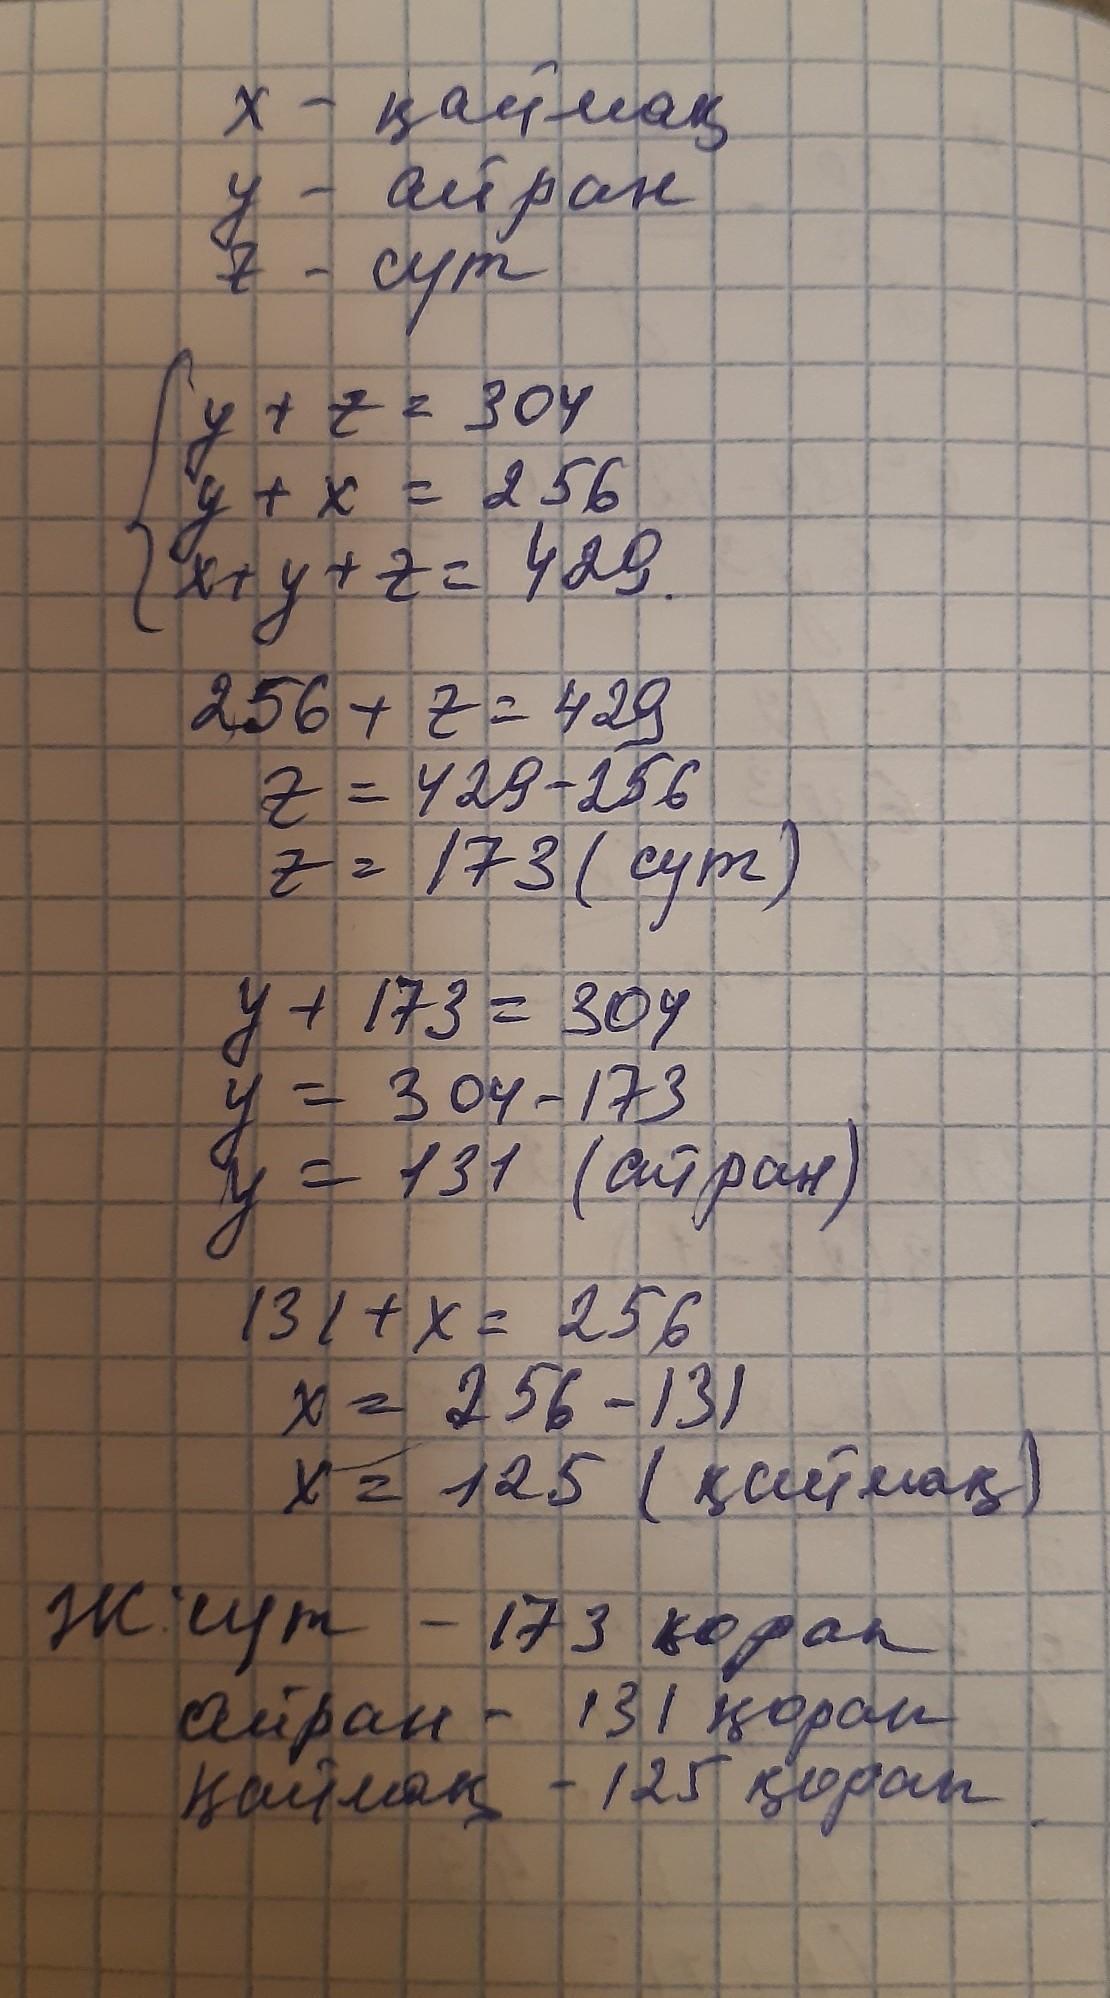 x - қаймақ
y - айран
z - сүт
y + z = 304
y + x = 256
x + y + z = 429.
256 + z = 429
z = 429 - 256
z = 173 (сүт)
y + 173 = 304
y = 304 - 173
y = 131 (айран)
131 + x = 256
x = 256 - 131
x = 125 (қаймақ)
Ж: сүт - 173 қорап
айран - 131 қорап
қаймақ - 125 қорап